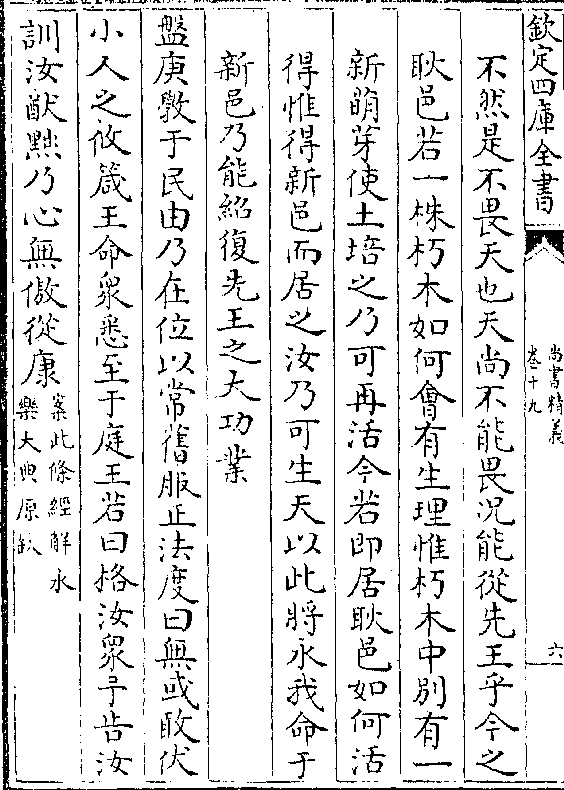 欽定四庫全書
尚書精義
卷十九
六
不然是不畏天也天尚不能畏況能從先王乎今之
耿邑若一株朽木如何會有生理惟朽木中別有一
新萌芽使土培之乃可再活今若即居耿邑如何活
得惟得新邑而居之汝乃可生天以此將永我命于
新邑乃能紹復先王之大功業
盤庚斆于民由乃在位以常舊服正法度曰無或敢伏
小人之攸箴王命衆悉至于庭王若曰格汝衆予告汝
訓汝猷黜乃心無傲從康
案此條經解永
樂大典原缺